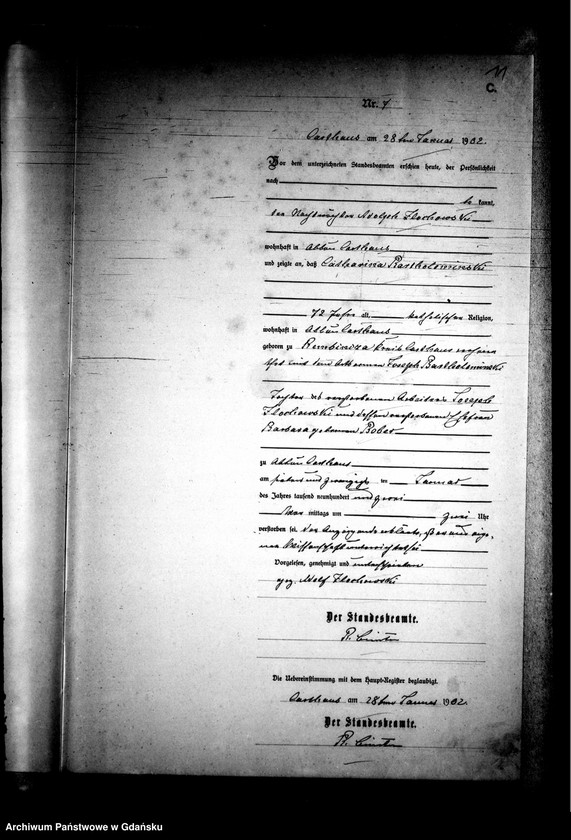 11
C.
Nr. 7
Carthaus am 28ten Januar 1902.
Vor dem unterzeichneten Standesbeamten erschien heute, der Persönlichkeit
nach
be kannt,
der Nachtwächter Adolph Zlochowski
wohnhaft in Abbau Carthaus
und zeigte an, daß Catharina Bartholominski
72 Jahre alt, katholischer Religion,
wohnhaft in Abbau Carthaus
geboren zu Kreis Carthaus
mit dem Joseph Bartholominski
Tochter des verstorbenen Arbeiters Joseph
Zlochowski und dessen verstorbenen Ehefrau
Barbara geborenen Bober
zu Abbau Carthaus
am sieben und zwanzigsten Januar
des Jahres tausend neunhundert und zwei
Vor mittags um zwei Uhr
verstorben sei. Der Anzeigende erklärte, daß er aus eige-
ner Wissenschaft unterrichtet sei
Vorgelesen, genehmigt und unterschrieben
gez. Adolf Zlochowski
Der Standesbeamte.
Die Uebereinstimmung mit dem Haupt-Register beglaubigt.
Carthaus am 28ten Januar 1902.
Der Standesbeamte.
Archiwum Państwowe w Gdańsku